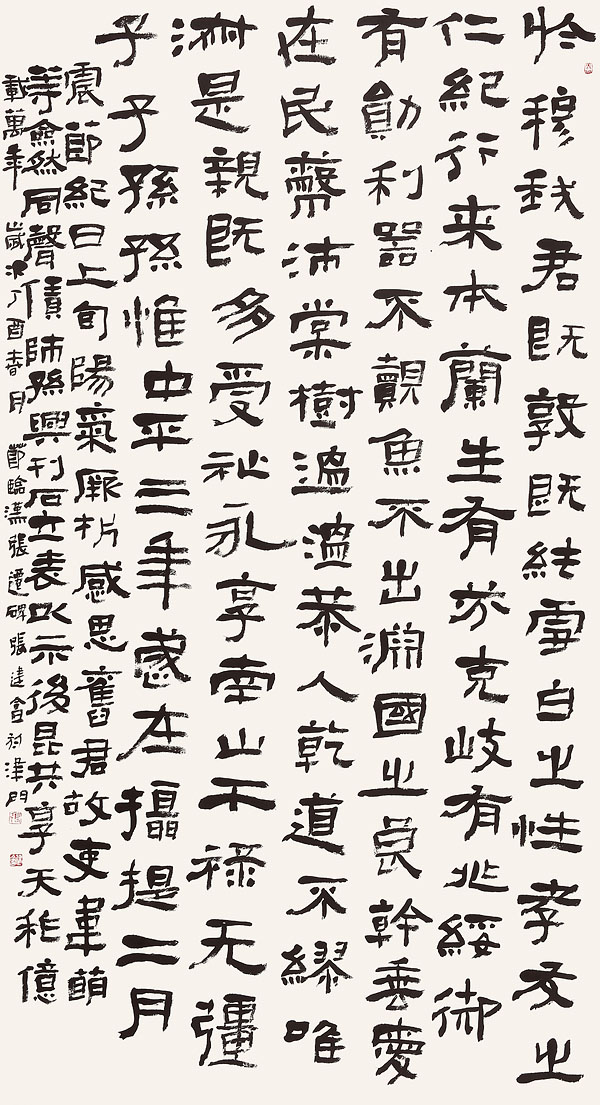 於穆我君既敦既純雪白之性孝友之
仁紀行来本蘭生有芬克岐有兆綏御
有勛利器不覿魚不出淵國之良幹垂愛
在民蔽沛棠樹溫溫恭人乾道不繆唯
淑是親既多受祉永享南山干禄无疆
子子孫孫惟中平三年歲在攝提二月
震節紀日上旬陽氣厥析感思舊君故吏韋萌
等僉然同聲賃師孫興刊石立表以示後昆共享天秨億
載萬年 歲次丁酉春月 節臨漢張遷碑 張建會於津門